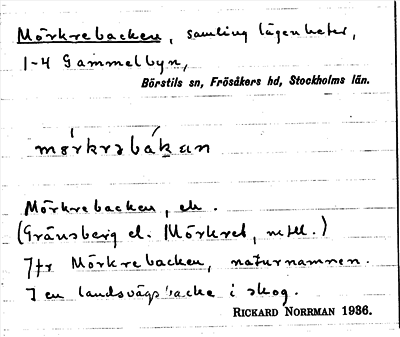 Mörkrebacken, samling lägenheter,
1-4 Gammelbyn,
Börstils sn, Frösåkers hd, Stockholms län.
mö̀rkrəbák an
Mörkrebacken, ek.
(Gränsberg el. Mörkret, mtll.)
Jfr Mörkrebacken, naturnamnen.
I en landsvägsbacke i skog.
RICKARD NORRMAN 1936.